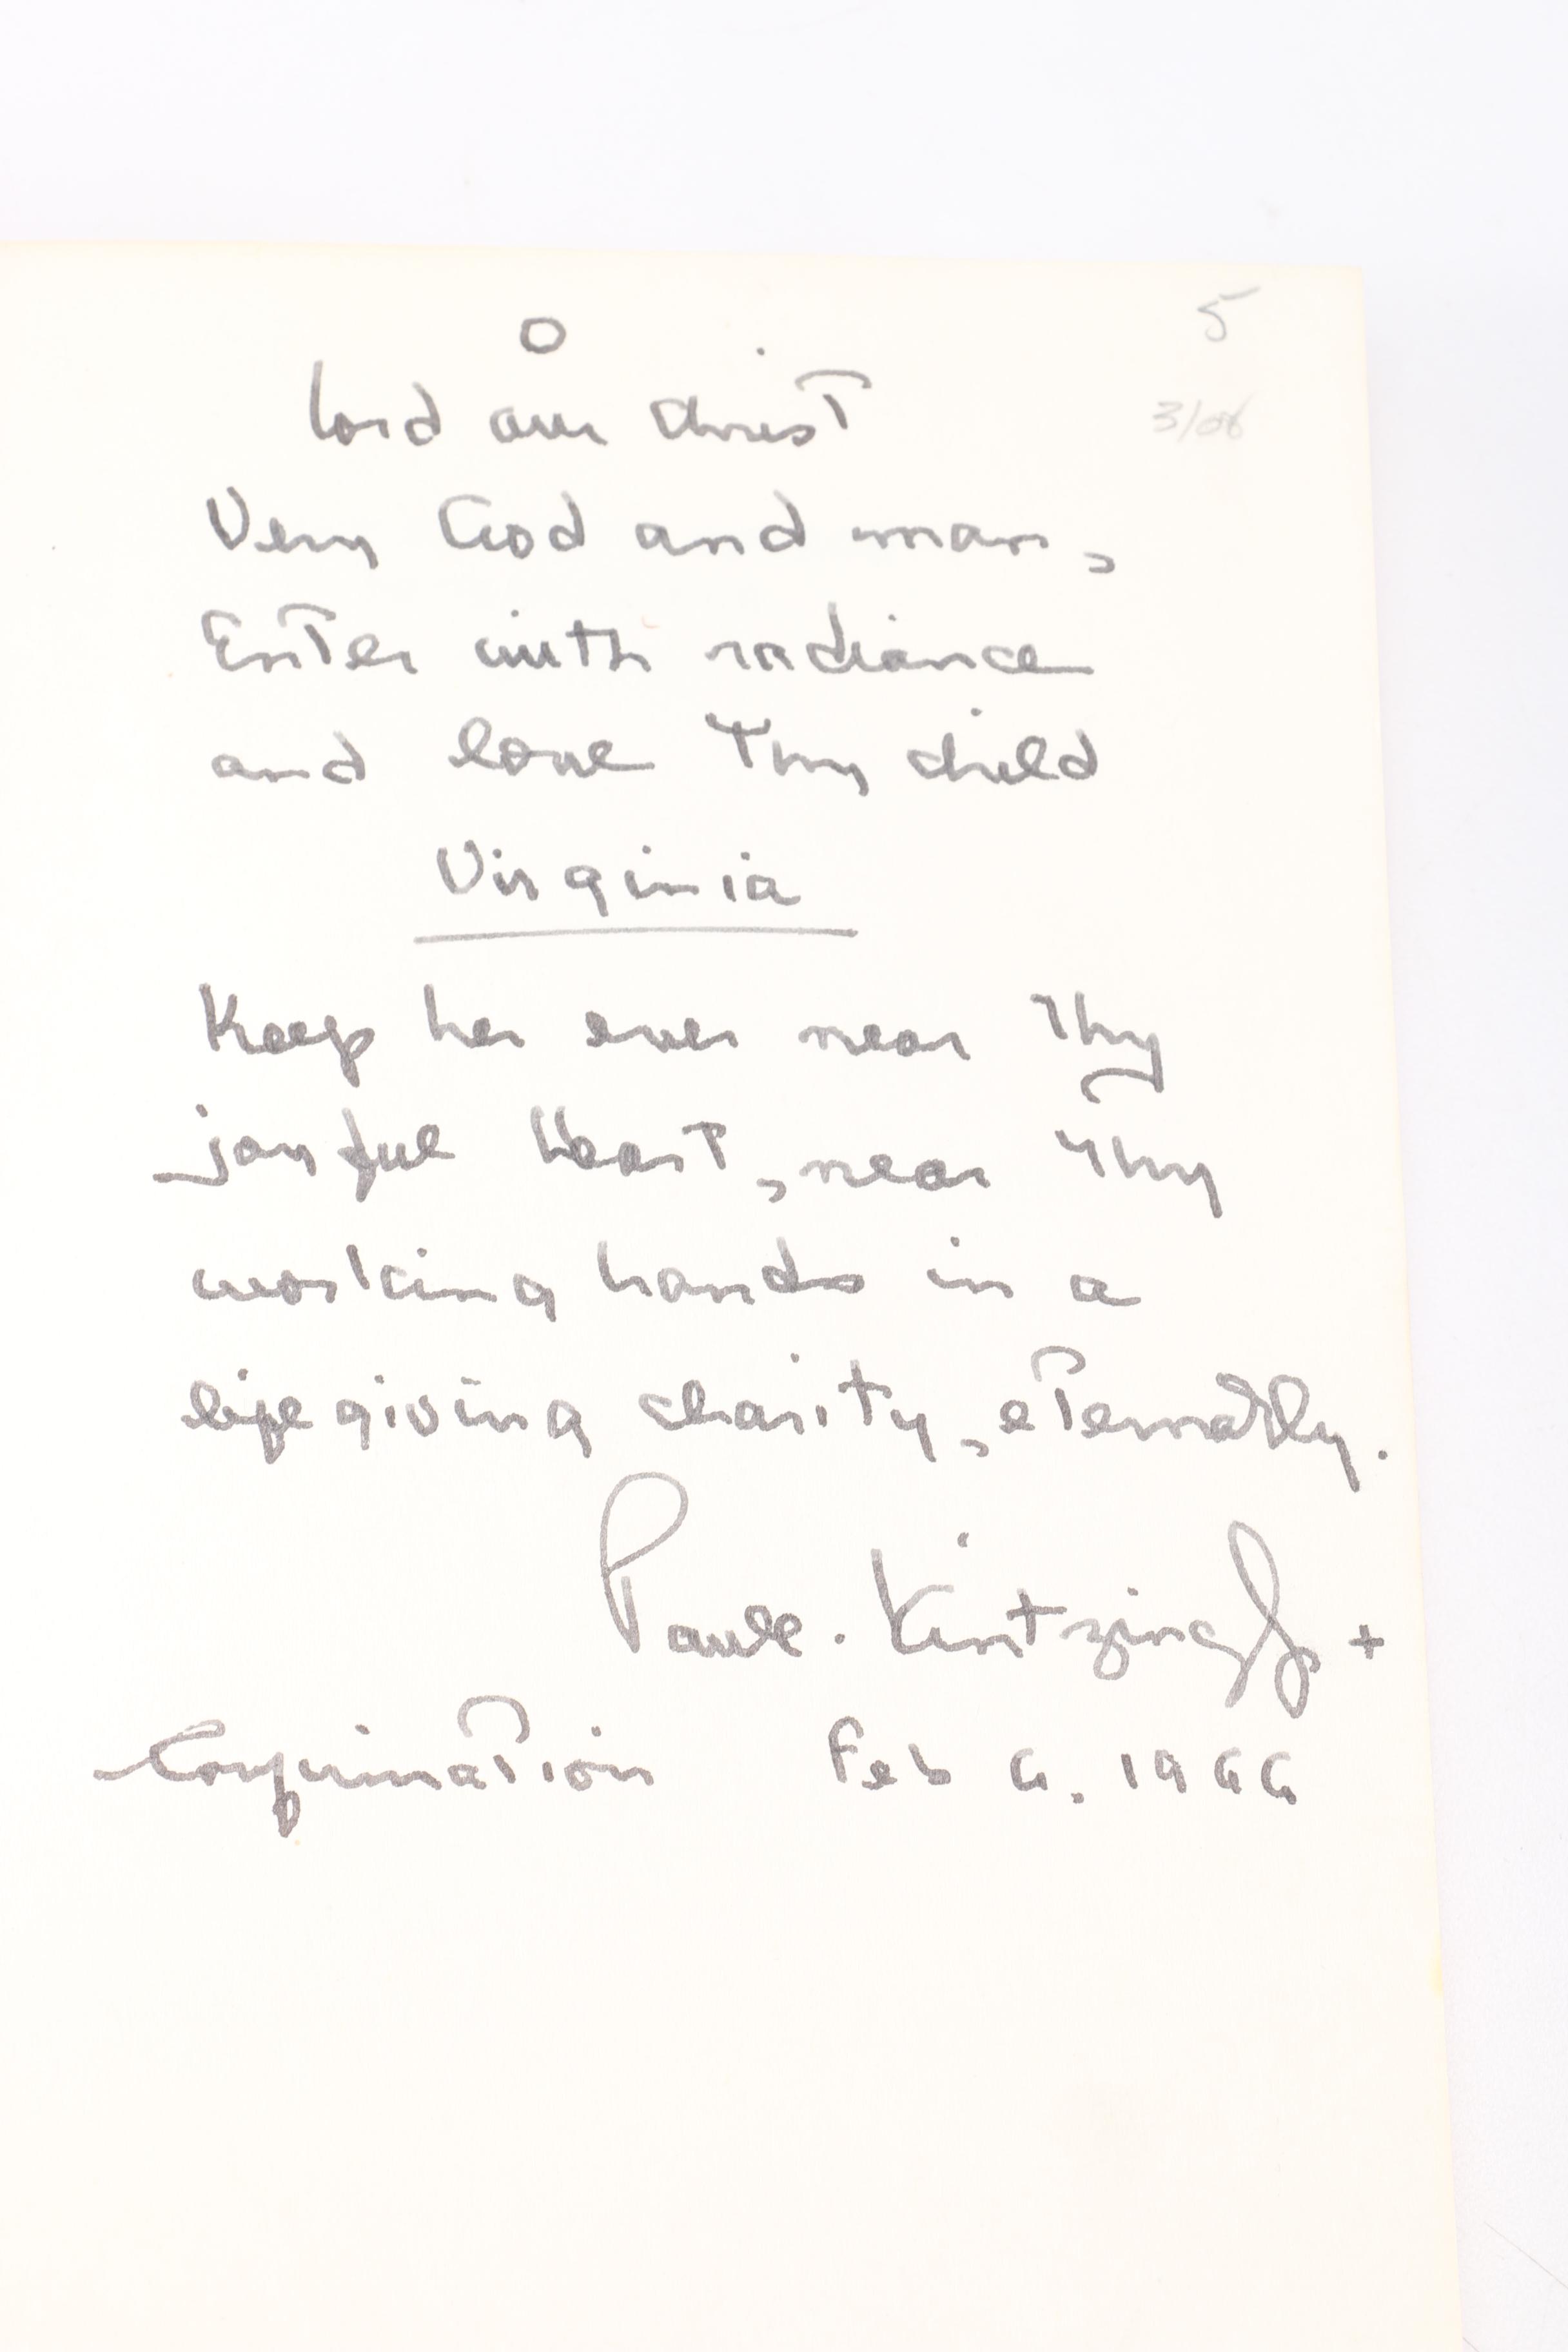 5
O
Lord our Christ
3/06
Very God and man,
Enter with radiance
and love Thy child
Virginia
Keep her ever near Thy
joyful Heart, near Thy
working hands in a
life giving charity, eternally.
Paul. Kintzing Jr +
Confirmation Feb 6. 1966